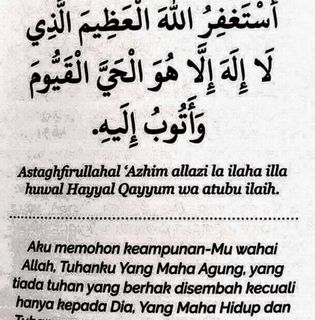 أَسْتَغْفِرُ اللهَ الْعَظِيمَ الَّذِي
لَا إِلَهَ إِلَّا هُوَ الْحَيَّ الْقَيُّومَ
وَأَتُوبُ إِلَيهِ.
Astaghfirullahal ‘Azhim allazi la ilaha illa
huwal Hayyal Qayyum wa atubu ilaih.
Aku memohon keampunan-Mu wahai
Allah, Tuhanku Yang Maha Agung, yang
tiada tuhan yang berhak disembah kecuali
hanya kepada Dia, Yang Maha Hidup dan